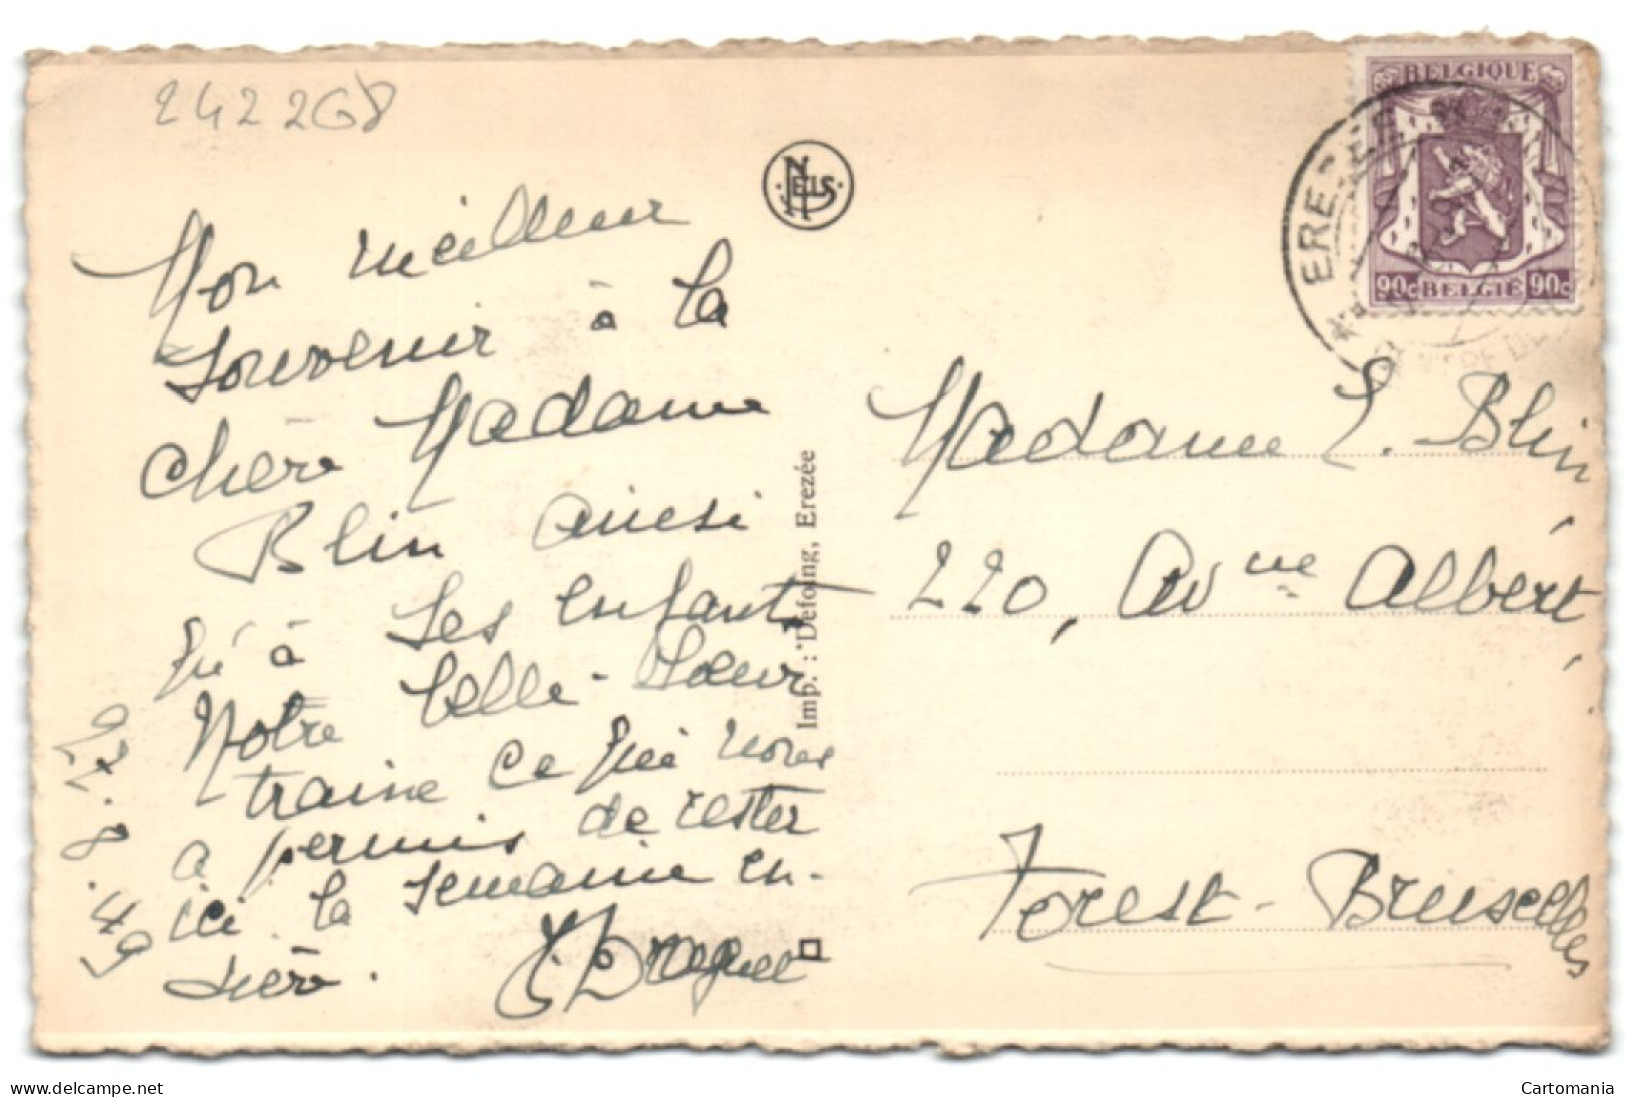 2422G8
Mon meilleur
souvenir à la
chère Madame
Blin ainsi
qu'à ses enfants
Notre belle-soeur
traine ce qui nous
a permis de rester
ici la semaine en-
tière.
NELS
Imp. : Defoing, Erezée
BELGIQUE
90c BELGIË 90c
EREZEE
Madame L. Blin
220, Avnue Albert,
Forest-Bruxelles
www.delcampe.net
Cartomania